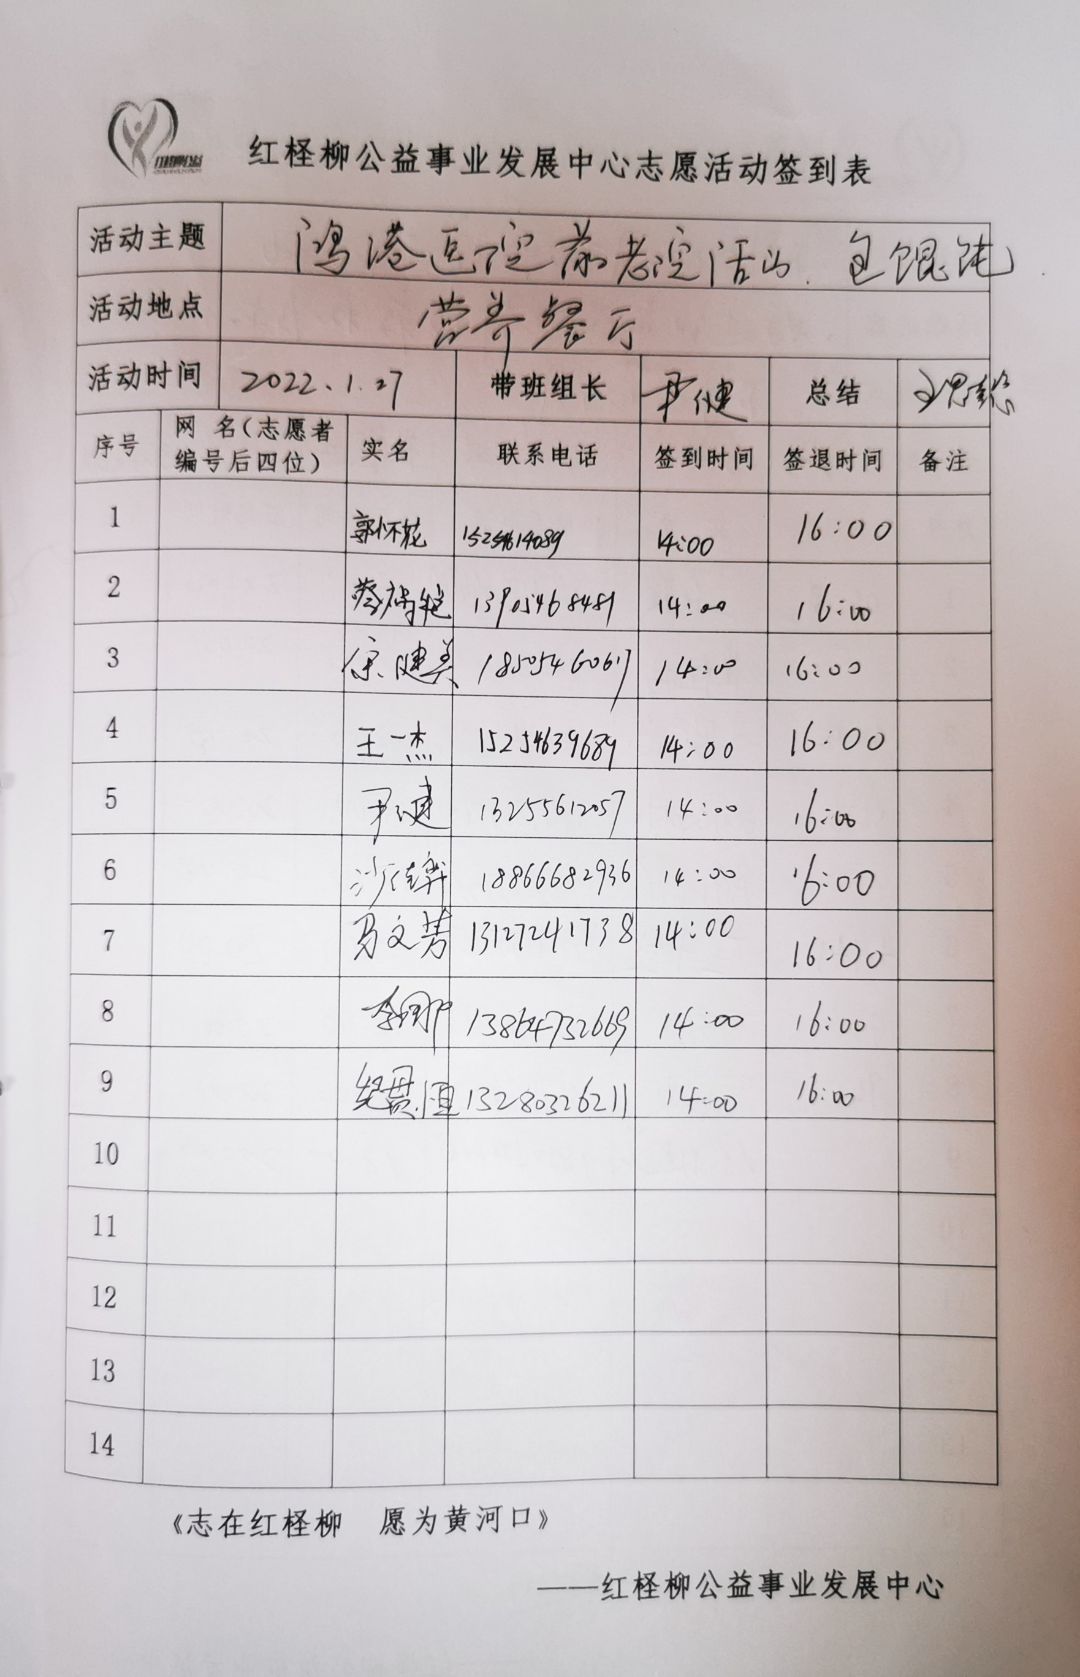 红柽柳公益事业发展中心志愿活动签到表
活动主题 鸿港医院养老院活动 包馄饨
活动地点 营养餐厅
活动时间 2022.1.27 带班组长 尹健 总结
序号 网 名(志愿者编号后四位) 实名 联系电话 签到时间 签退时间 备注
1 郭怀花 15254614089 14:00 16:00
2 13905468481 14:00 16:00
3 健美 18505460617 14:00 16:00
4 王一杰 15254639689 14:00 16:00
5 尹健 13255612057 14:00 16:00
6 18866682936 14:00 16:00
7 马文芳 13127241738 14:00 16:00
8 13864732669 14:00 16:00
9 纪贯恒 13280326211 14:00 16:00
10
11
12
13
14
《志在红柽柳 愿为黄河口》
——红柽柳公益事业发展中心